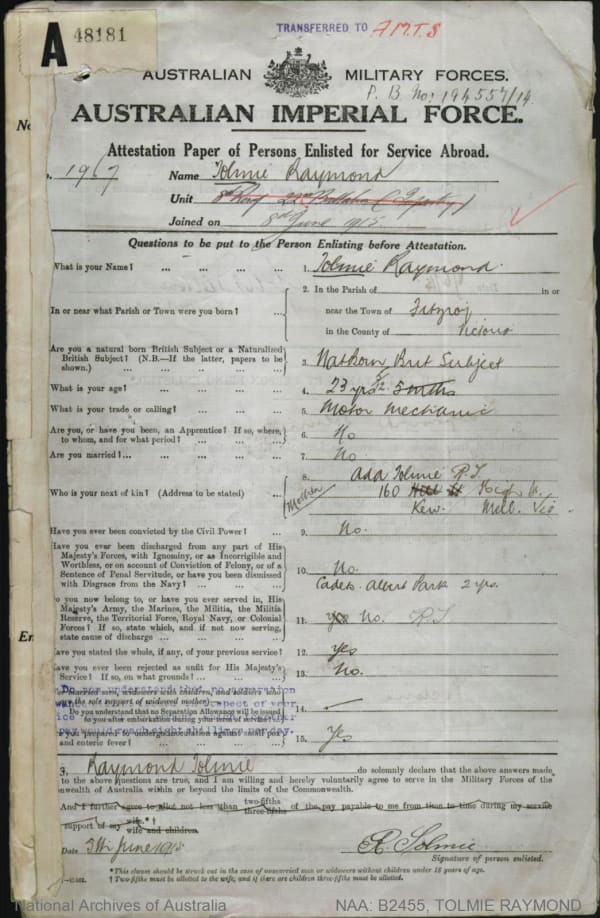 TRANSFERRED TO A.M.T.S
A 48181
AUSTRALIAN MILITARY FORCES.
P. B No: 194557/14
AUSTRALIAN IMPERIAL FORCE.
Attestation Paper of Persons Enlisted for Service Abroad.
No. 1967 Name Tolmie Raymond
Unit 22nd Battalion (Infantry)
Joined on 8th June 1915
Questions to be put to the Person Enlisting before Attestation.
What is your Name? ... ... ... ... 1. Tolmie Raymond.
2. In the Parish of in or
In or near what Parish or Town were you born? ... near the Town of Fitzroy
in the County of Victoria
Are you a natural born British Subject or a Naturalized
British Subject? (N.B.—If the latter, papers to be
shown.) ... ... ... ... ... 3. Nat born Brit Subject
What is your age? ... ... ... ... 4. 23 yrs
What is your trade or calling? ... ... ... 5. Motor Mechanic
Are you, or have you been, an Apprentice? If so, where,
to whom, and for what period? ... ... ... 6. No
Are you married? ... ... ... ... ... 7. No.
8. Ada Tolmie R.T
Who is your next of kin? (Address to be stated) ... (Mother) 160 High St.
Kew. Melb. Vic
Have you ever been convicted by the Civil Power? ... 9. No.
Have you ever been discharged from any part of His
Majesty's Forces, with Ignominy, or as Incorrigible and
Worthless, or on account of Conviction of Felony, or of a
Sentence of Penal Servitude, or have you been dismissed
with Disgrace from the Navy? ... ... ... 10. No.
Cadets. Albert Park 2 yrs.
Do you now belong to, or have you ever served in, His
Majesty's Army, the Marines, the Militia, the Militia
Reserve, the Territorial Force, Royal Navy, or Colonial
Forces? If so, state which, and if not now serving,
state cause of discharge ... ... ... ... 11. yes No. R.T
Have you stated the whole, if any, of your previous service? 12. yes
Have you ever been rejected as unfit for His Majesty's
Service? If so, on what grounds? ... ... ... 13. No.
Do you understand that no Separation Allowance will be issued 14. —
to you after embarkation during your term of service?
Are you prepared to undergo inoculation against small pox
and enteric fever? ... 15. Yes
I, Raymond Tolmie do solemnly declare that the above answers made
to the above questions are true, and I am willing and hereby voluntarily agree to serve in the Military Forces of the
Commonwealth of Australia within or beyond the limits of the Commonwealth.
And I further agree to allot not less than two-fifths three-fifths of the pay payable to me from time to time during my service
support of my wife.* † wife and children.
Date 5th June 1915 R Tolmie
Signature of person enlisted.
* This clause should be struck out in the case of unmarried men or widowers without children under 18 years of age.
† Two-fifths must be allotted to the wife, and if there are children three-fifths must be allotted.
National Archives of Australia NAA: B2455, TOLMIE RAYMOND